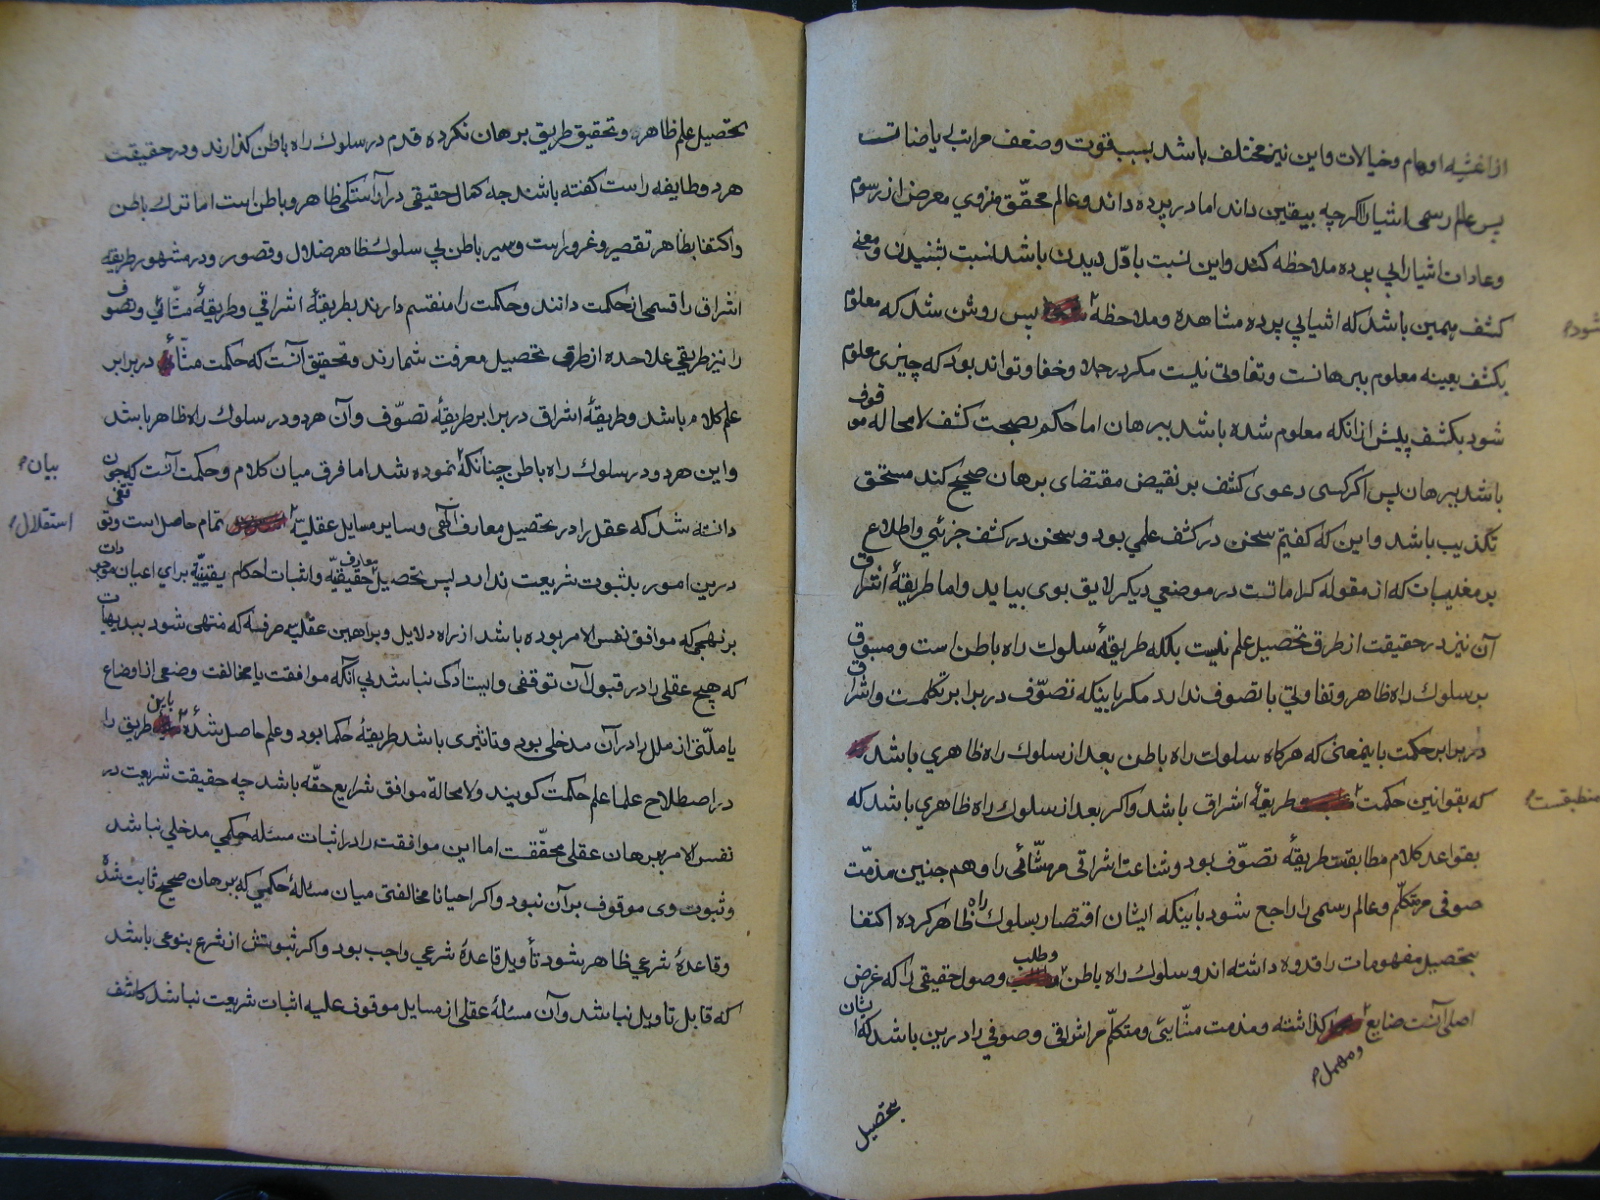 از اغشیه اوهام و خیالات و این نیز مختلف باشد بسبب قوت و ضعف مراتب ریاضات
پس عالم رسمی اشیا را اکرچه بیقین داند اما در پرده داند و عالم محقّق منزوی معرض از رسوم
و عادات اشیا را بی پرده ملاحظه کند و این نسبت باوّل دیدن باشد نسبت بشنیدن و معنی
کشف همین باشد که اشیا بی پرده مشاهده و ملاحظه پس روشن شد که معلوم
شود
بکشف بعینه معلوم ببرهانست و تفاوتی نیست مکر در جلا و خفا و تواند بود که چیزی معلوم
شود بکشف پیش از انکه معلوم شده باشد ببرهان اما حکم بصحت کشف لا محاله موقوف
باشد ببرهان پس اکر کسی دعوی کشف بر نقیض مقتضای برهان صحیح کند مستحق
تکذیب باشد و این که کفتیم سخن در کشف علمی بود و سخن در کشف جزئی و اطلاع
بر مغیبات که از مقوله کراماتست در موضعی دیکر لایق بوی بیاید و اما طریقهٔ اشراق
آن نیز در حقیقت از طرق تحصیل علم نیست بلکه طریقهٔ سلوک راه باطن است و مسبوق
بر سلوک راه ظاهر و تفاوتی با تصوف ندارد مکر باینکه تصوّف در برابر تکلمست و اشراق
در برابر حکمت باینمعنی که هرکاه سلوک راه باطن بعد از سلوک راه ظاهری باشد
که بقوانین حکمت طریقهٔ اشراق باشد و اکر بعد از سلوک راه ظاهری باشد که
منطبقست
بقواعد کلام مطابقست طریقهٔ تصوّف بود و شناعت اشراقی مر مشّائی را و هم چنین مذمّت
صوفی مر متکلّم و عالم رسمی را راجع شود باینکه ایشان اقتصار بسلوک راه ظاهر کرده اکتفا
بتحصیل مفهومات را قدوه داشته اند و سلوک راه باطن و طلب وصول حقیقی را که غرض
اصلی آنست ضایع کذاشته و مذمت مشّایئ و متکلّم مر اشراقی و صوفی را درین باشد که ایشان
و مهمل
تحصیل
تحصیل علم ظاهر و تحقیق طریق برهان نکرده قدم در سلوک راه باطن کذارند و در حقیقت
هر دو طایفه راست کفته باشند چه کمال حقیقی در آراستکی ظاهر و باطن است اما ترک باطن
و اکتفا بظاهر تقصیر و غرور است و سیر باطن بی سلوک ظاهر ضلال و قصور و در مشهور طریقه
اشراق را قسمی از حکمت دانند و حکمت را منقسم دارند بطریقهٔ اشراقی و طریقهٔ مشّائی و تصوف
را نیز طریقی علاحده از طرق تحصیل معرفت شمارند و تحقیق آنست که حکمت مشّاء در برابر
علم کلام باشد و طریقهٔ اشراق در برابر طریقهٔ تصوّف و آن هر دو در سلوک راه ظاهر باشد
و این هر دو در سلوک راه باطن چنانکه نموده شد اما فرق میان کلام و حکمت آنست که چون
بیان
دانسته شد که عقل را در تحصیل معارف الٓهی و سایر مسایل عقلیّه تمام حاصل است و توقفی
استقلال
درین امور بثبوت شریعت ندارد پس تحصیل معارف حقیقیّه و اثبات احکام یقینیّه برای اعیان موجودات
بر نهجی که موافق نفس الامر بوده باشد از راه دلایل و براهین عقلیه صرفه که منتهی شود ببدیهیات
که هیچ عقلی را در قبول آن توقفی و ایستادکی نباشد بی آنکه موافقت یا مخالفت وضعی از اوضاع
یا ملّتی از ملل را در آن مدخلی بود و تاثیری باشد طریقهٔ حکما بود و علم حاصل شده باین طریق را
در اصطلاح علما علم حکمت کویند و لا محالة موافق شرایع حقّه باشد چه حقیقت شریعت در
نفس الامر ببرهان عقلی محقّقست اما این موافقت را در اثبات مسئله حکمی مدخلی نباشد
و ثبوت وی موقوف بر آن نبود و اکر احیانا مخالفتی میان مسئلهٔ حکمی که ببرهان صحیح ثابت شده
و قاعدهٔ شرعی ظاهر شود تأویل قاعدهٔ شرعی واجب بود و اکر ثبوتش از شرع بنوعی باشد
که قابل تاویل نباشد و آن مسئلهٔ عقلی از مسایل موقوف علیه اثبات شریعت نباشد کاشف